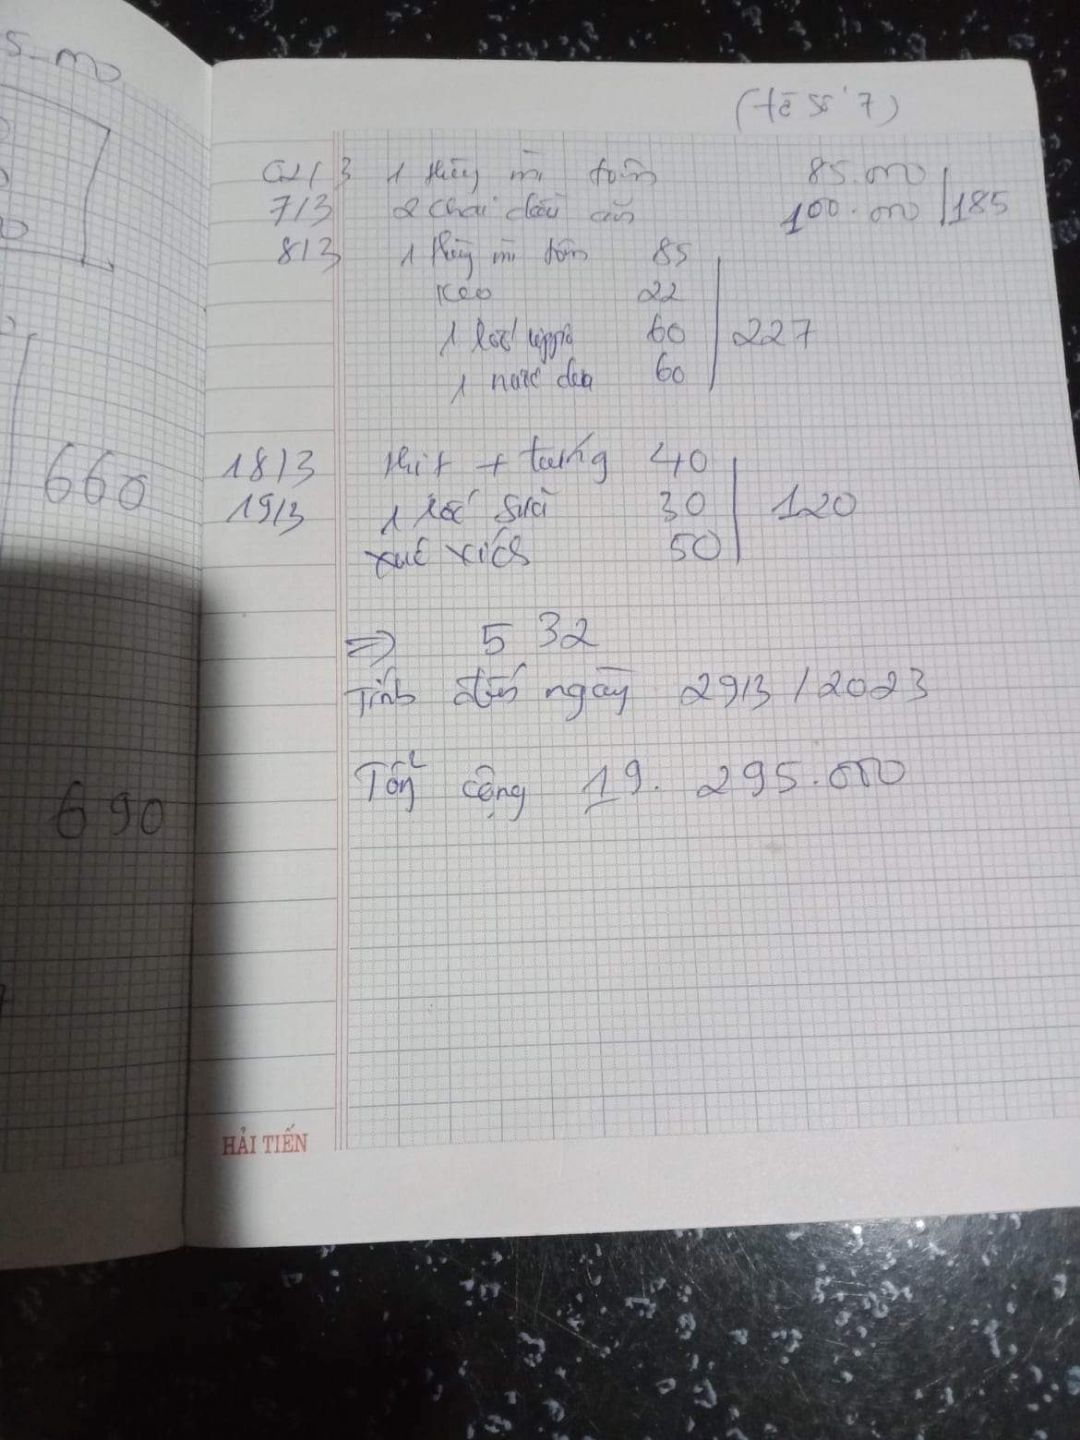 660
690
(tờ số 7)
02/3 1 thùng mì tôm 85.000
7/3 2 chai dầu ăn 100.000 185
8/3 1 thùng mì tôm 85
Kẹo 22
1 lốc 60 227
1 nước dừa 60
18/3 thịt + tương 40
19/3 1 lốc sữa 30 120
xúc xích 50
=> 532
Tính đến ngày 29/3/2023
Tổng cộng 19.295.000
HẢI TIẾN